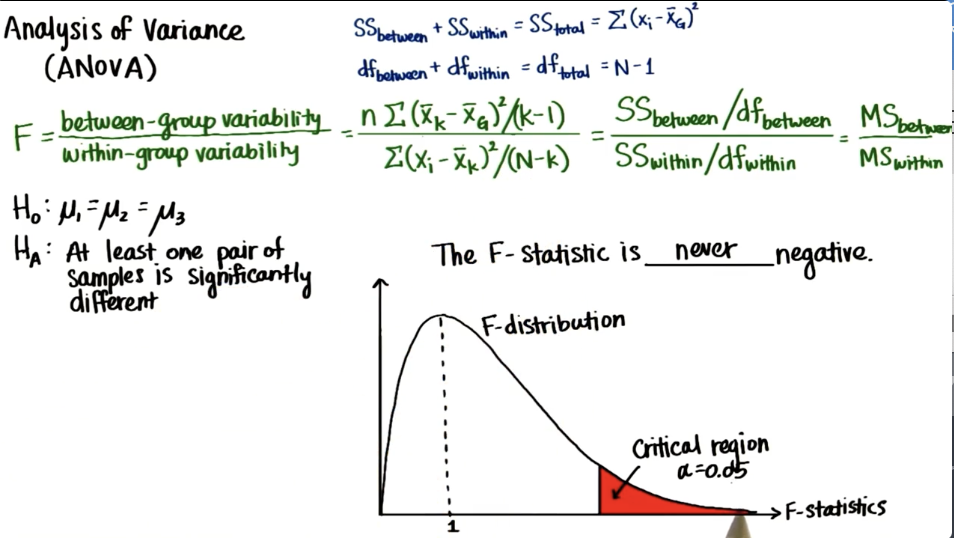 Analysis of Variance
(ANOVA)
SS_between + SS_within = SS_total = Σ(x_i - x̄_G)²
df_between + df_within = df_total = N-1
F = between-group variability / within-group variability = n Σ(x̄_k - x̄_G)²/(k-1) / Σ(x_i - x̄_k)²/(N-k) = SS_between/df_between / SS_within/df_within = MS_between / MS_within
H₀: μ₁ = μ₂ = μ₃
H_A: At least one pair of
samples is significantly
different
The F-statistic is never negative.
F-distribution
Critical region
α=0.05
1
F-statistics